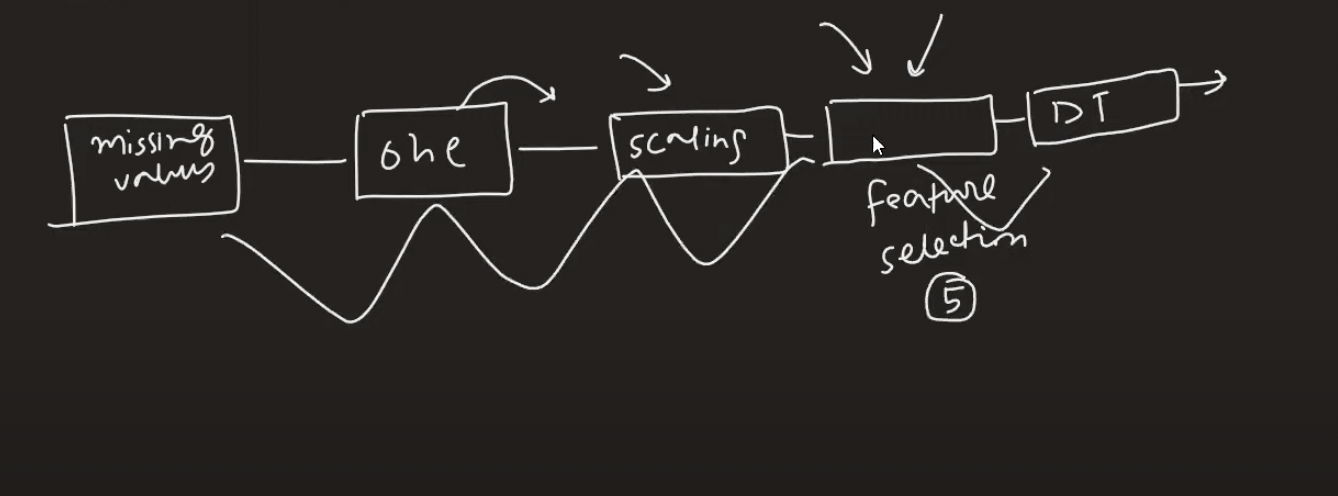 missing
values
ohe
scaling
DT
feature
selection
5